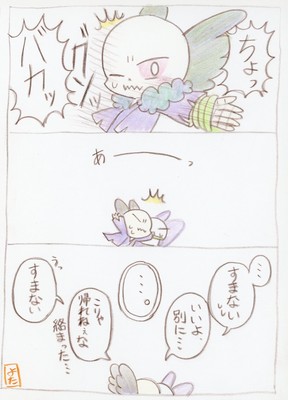 ちょっ
グンッ
バカッ
あーっ
…すまない
いいよ、
別に…
…。
こりゃ
帰れねぇな
絡まった…
うっ
すまない